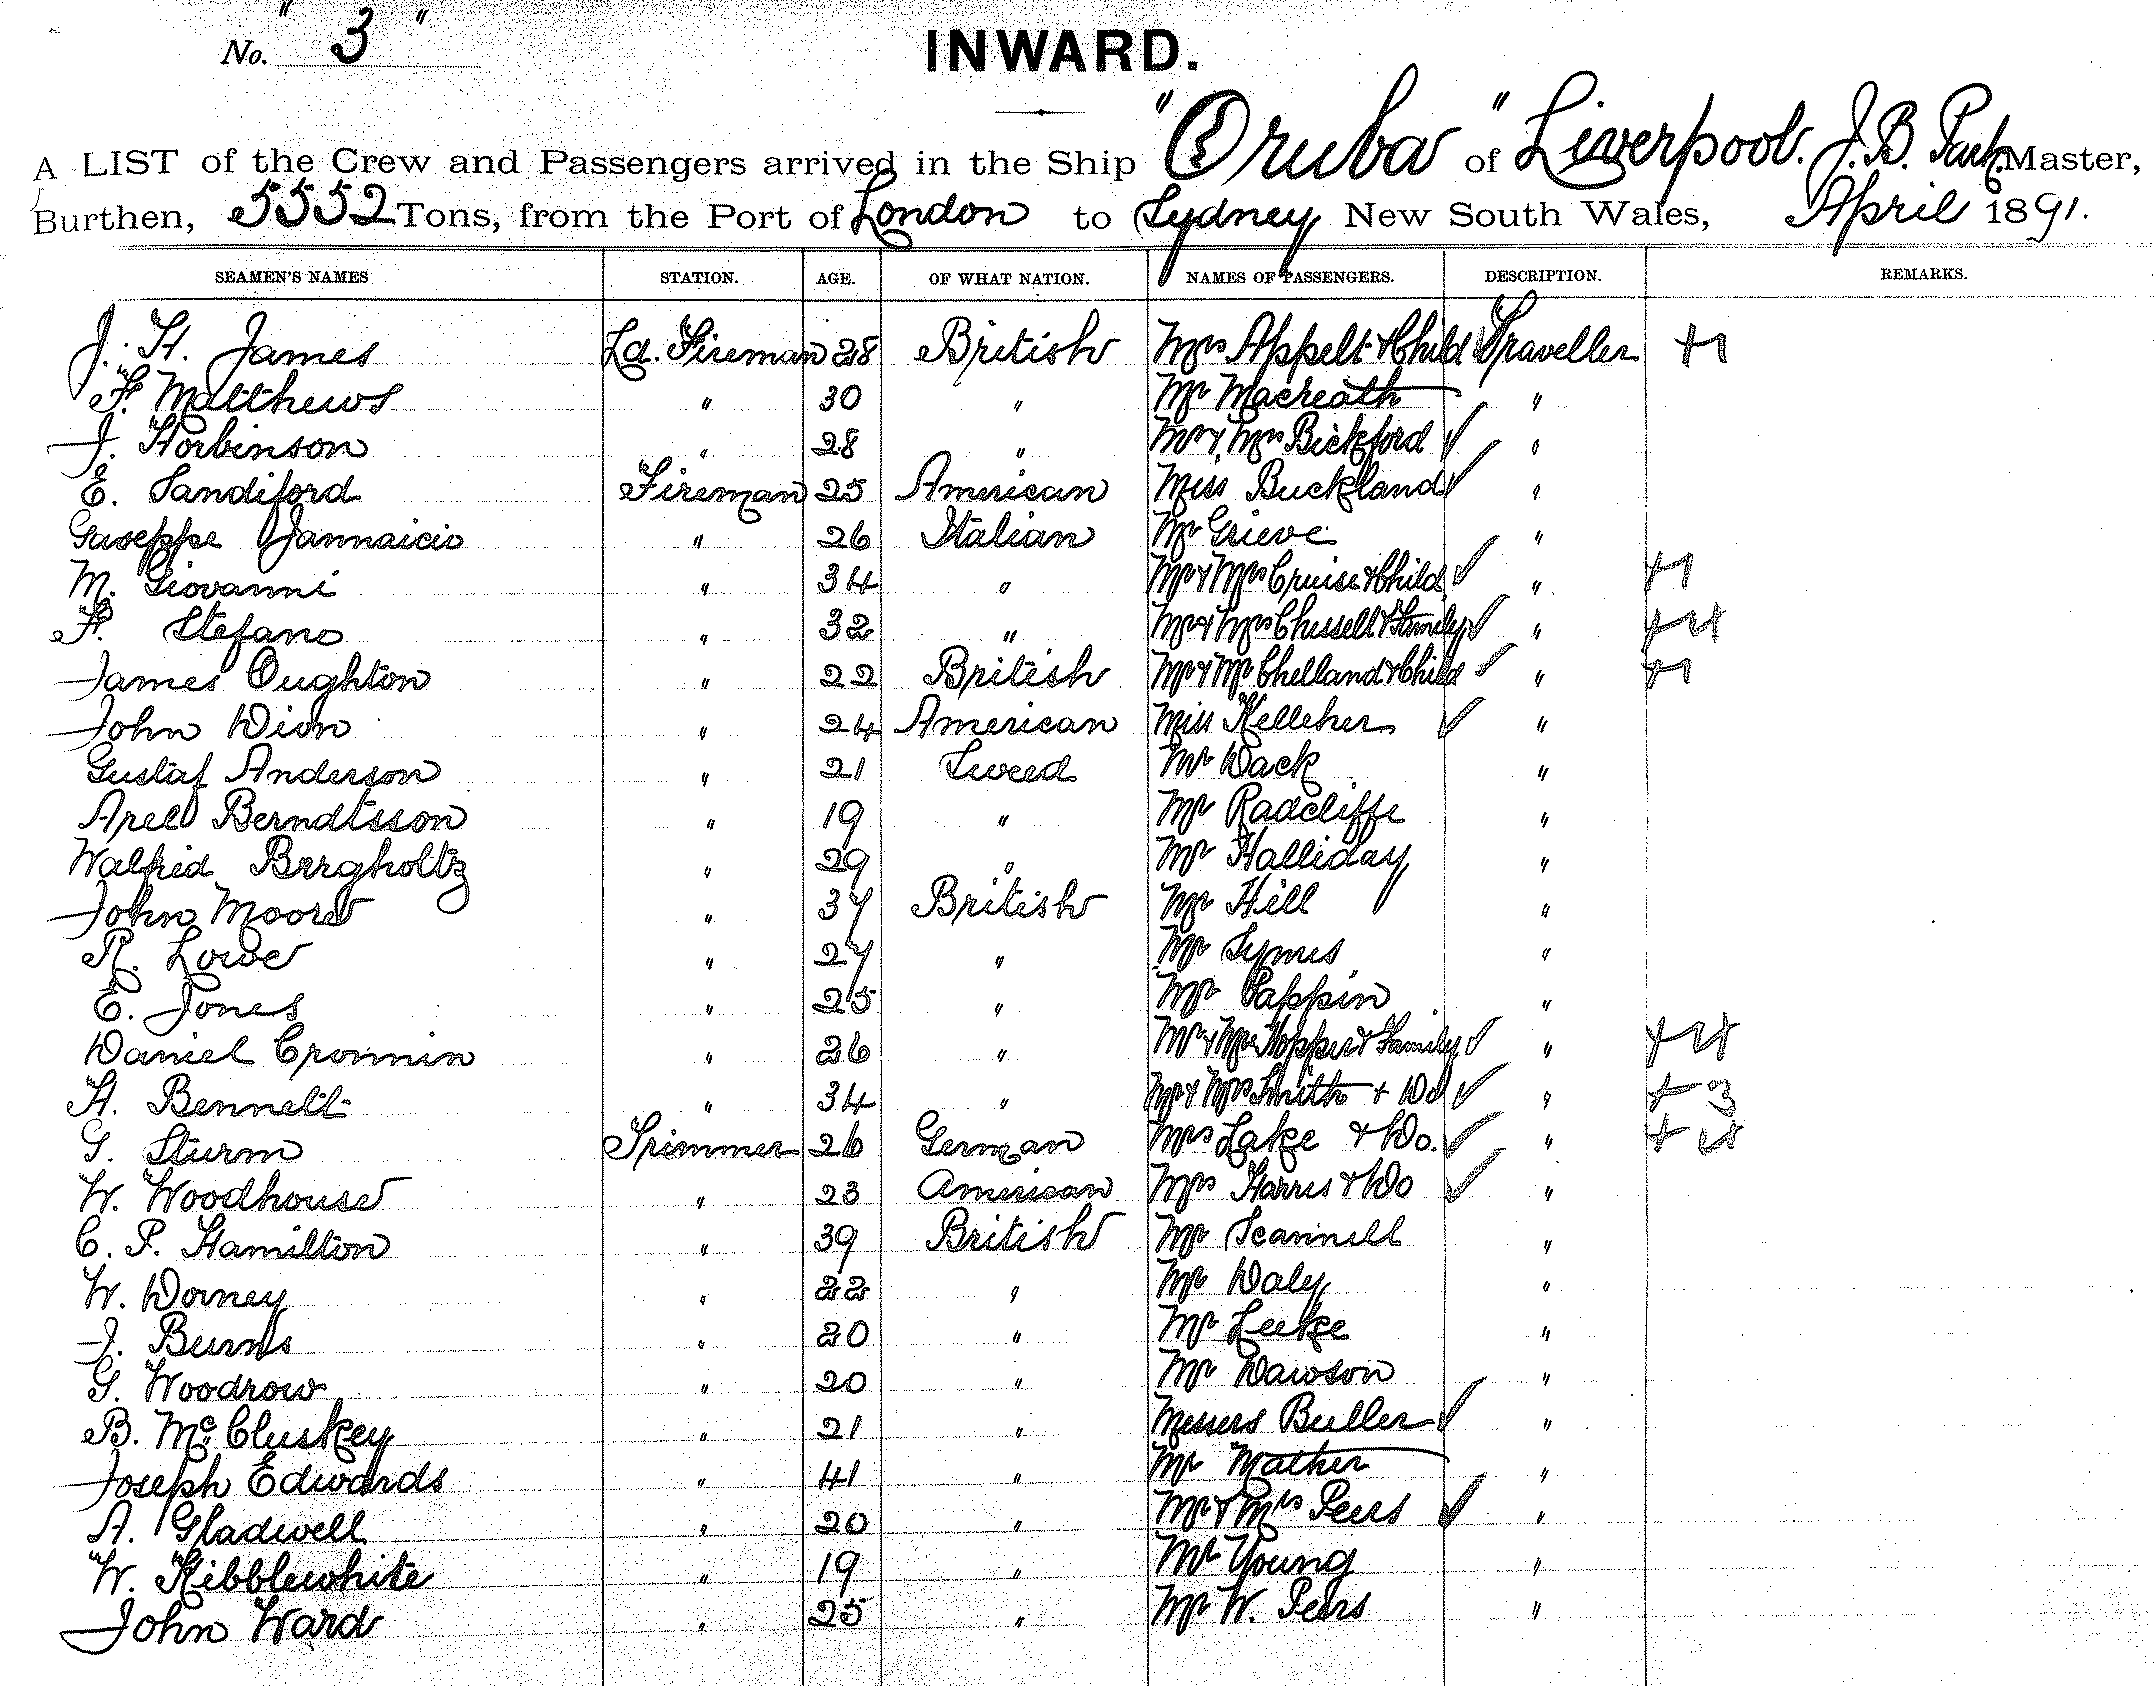 No. " 3 "
INWARD.
A LIST of the Crew and Passengers arrived in the Ship "Oruba" of Liverpool. J. B. Park Master,
Burthen, 5552 Tons, from the Port of London to Sydney New South Wales, April 1891.
SEAMEN'S NAMES STATION. AGE. OF WHAT NATION. NAMES OF PASSENGERS. DESCRIPTION. REMARKS.
J. H. James Ld. Fireman 28 British Mrs Appelt & Child Traveller +1
F. Matthews " 30 " Mr Macreath "
J. Horbinson " 28 " Mr & Mrs Bickford ✓ "
E. Sandiford Fireman 25 American Miss Buckland ✓ "
Guseppe Jannaicio " 26 Italian Mr Grieve "
M. Giovanni " 34 " Mr & Mrs Cruise & Child ✓ " +1
F. Stefano " 32 " Mr & Mrs Chessell & Family ✓ " +4
James Oughton " 22 British Mr & Mrs Chelland & Child ✓ " +1
John Dion " 24 American Miss Kelleher ✓ "
Gustaf Anderson " 21 Sweed Mr Dack "
Axel Berndtsson " 19 " Mr Radcliffe "
Walfrid Bergholtz " 29 " Mr Halliday "
John Moore " 37 British Mr Hill "
R. Lowe " 27 " Mr Symes "
E. Jones " 25 " Mr Pappin "
Daniel Cronnin " 26 " Mr & Mrs Hopper & Family ✓ " +4
H. Bennett " 34 " Mr & Mrs Smith + Do ✓ " +3
G. Sturm Trimmer 26 German Mrs Lake & Do. ✓ " +
W. Woodhouse " 23 American Mrs Harris & Do ✓ "
C. P. Hamilton " 39 British Mr Scannell "
W. Dorney " 22 " Mr Daly "
J. Burns " 20 " Mr Luke "
G. Woodrow " 20 " Mr Dawson "
B. McCluskey " 21 " Messers Buller ✓ "
Joseph Edwards " 41 " Mr Mather "
A. Gladwell " 20 " Mr & Mrs Peers ✓ "
W. Kibblewhite " 19 " Mr Young "
John Ward " 25 " Mr W. Peers "